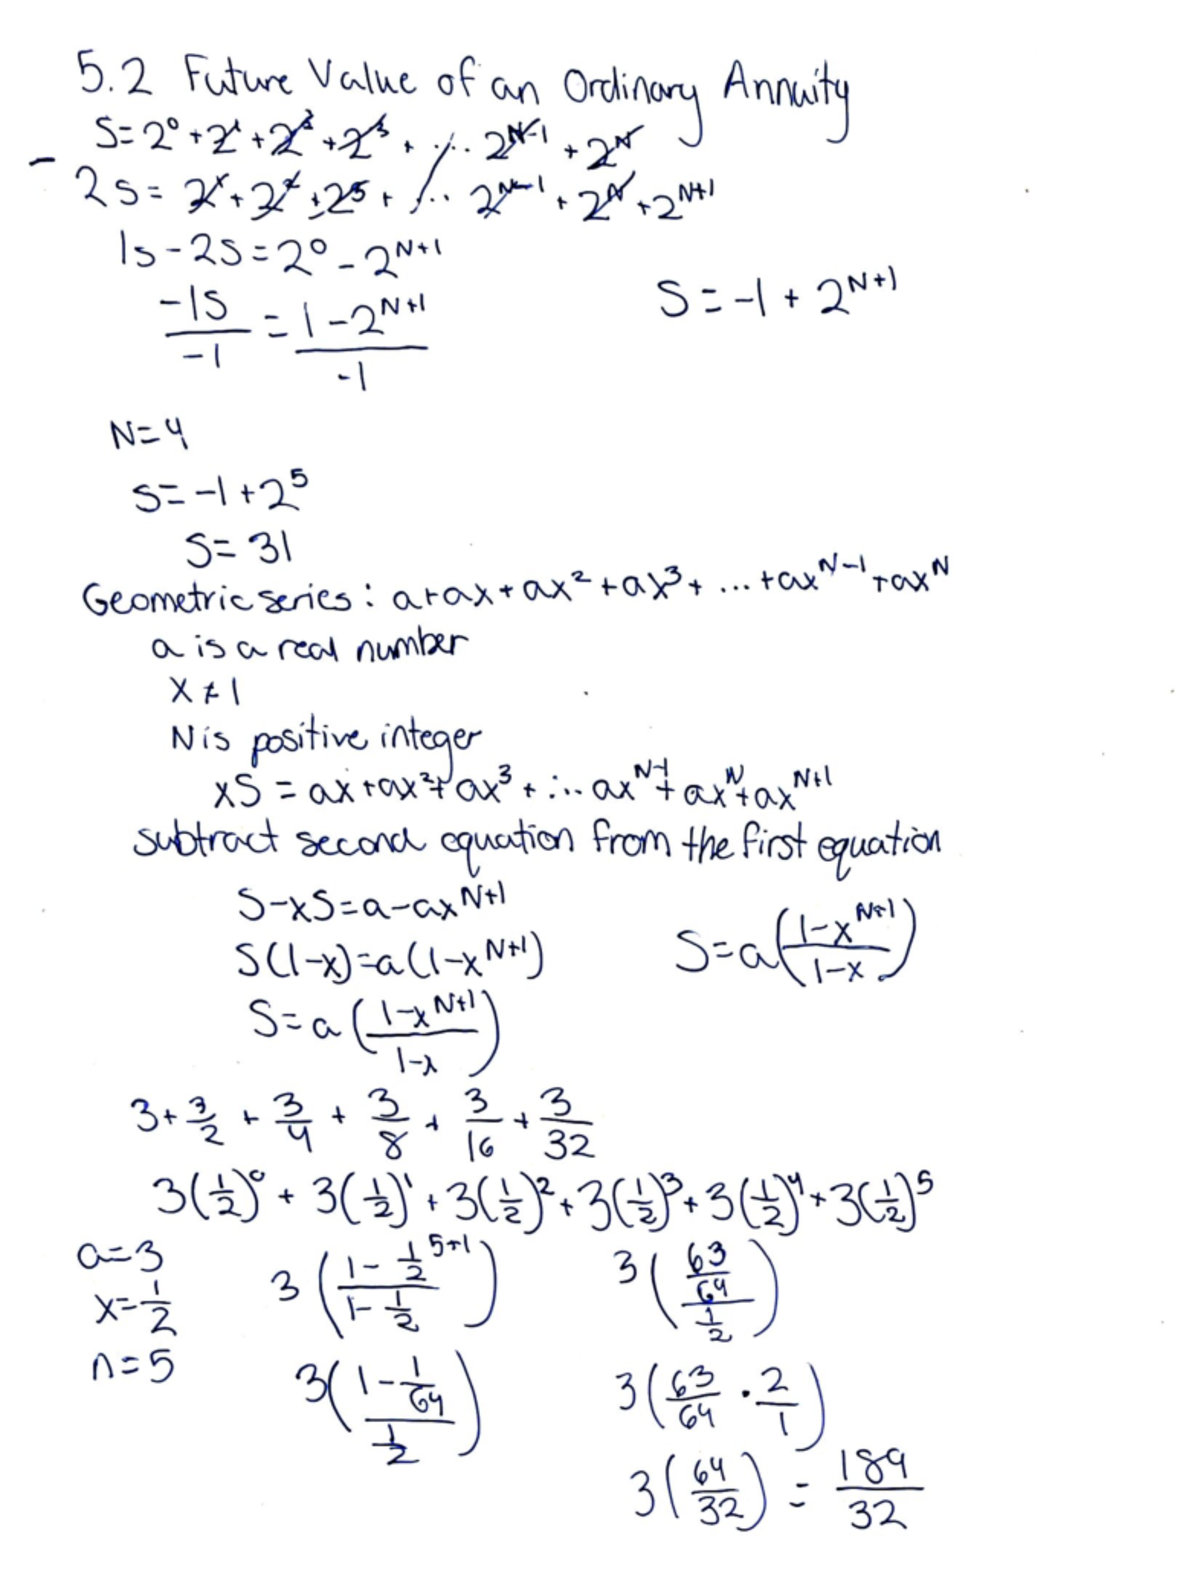 5.2 Future Value of an Ordinary Annuity
S=2⁰+2¹+2²+2³+ ... 2ᴺ⁻¹+2ᴺ
- 2S=2¹+2²+2³+ ... 2ᴺ⁻¹+2ᴺ+2ᴺ⁺¹
1S-2S=2⁰-2ᴺ⁺¹
-1S/-1 = 1-2ᴺ⁺¹/-1
S=-1+2ᴺ⁺¹
N=4
S=-1+2⁵
S=31
Geometric series: a+ax+ax²+ax³+ ... +axᴺ⁻¹+axᴺ
a is a real number
x≠1
N is positive integer
xS=ax+ax²+ax³+... axᴺ⁻¹+axᴺ+axᴺ⁺¹
subtract second equation from the first equation
S-xS=a-axᴺ⁺¹
S(1-x)=a(1-xᴺ⁺¹)
S=a(1-xᴺ⁺¹/1-x)
S=a(1-xᴺ⁺¹/1-x)
3+3/2+3/4+3/8+3/16+3/32
3(1/2)⁰+3(1/2)¹+3(1/2)²+3(1/2)³+3(1/2)⁴+3(1/2)⁵
a=3
x=1/2
n=5
3(1-1/2⁵⁺¹/1-1/2)
3(1-1/64/1/2)
3(63/64/1/2)
3(63/64·2/1)
3(64/32)=189/32